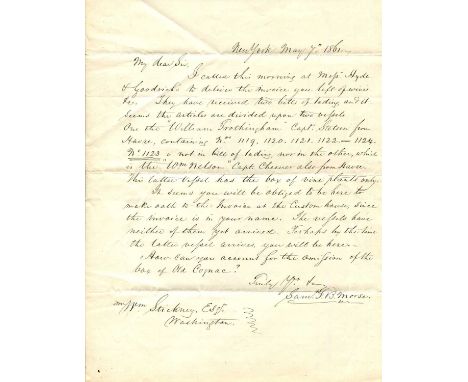 New York May 7. 1861
My dear Sir.
I called this morning at Mess Hyde
& Goodrich's to deliver the invoice you left of wine
&c. They have received two bills of lading and it
seems the articles are divided upon two vessels
One the "William Frothingham" Capt. Stetson from
Havre, containing Nos 1119, 1120. 1121. 1122.—1124.
No 1123 is not in bill of lading nor in the other, which
in the "Wm Nelson" Capt Cheever also from Havre.
This latter vessel has the box of vine plants only.
It seems you will be obliged to be here to
make oath to the Invoice at the Custom house, since
the Invoice is in your name. The vessels have
neither of them yet arrived. Perhaps by the time
the latter vessel arrives you will be here.
How can you account for the omission of the
box of Old Cognac?
Truly Yrs &c
Sam. F. B. Morse.
Wm Stickney, Esq.
Washington.